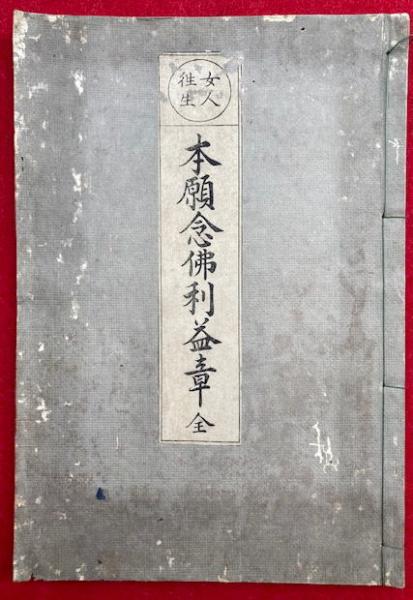 女人
往生
本願念佛利益章 全